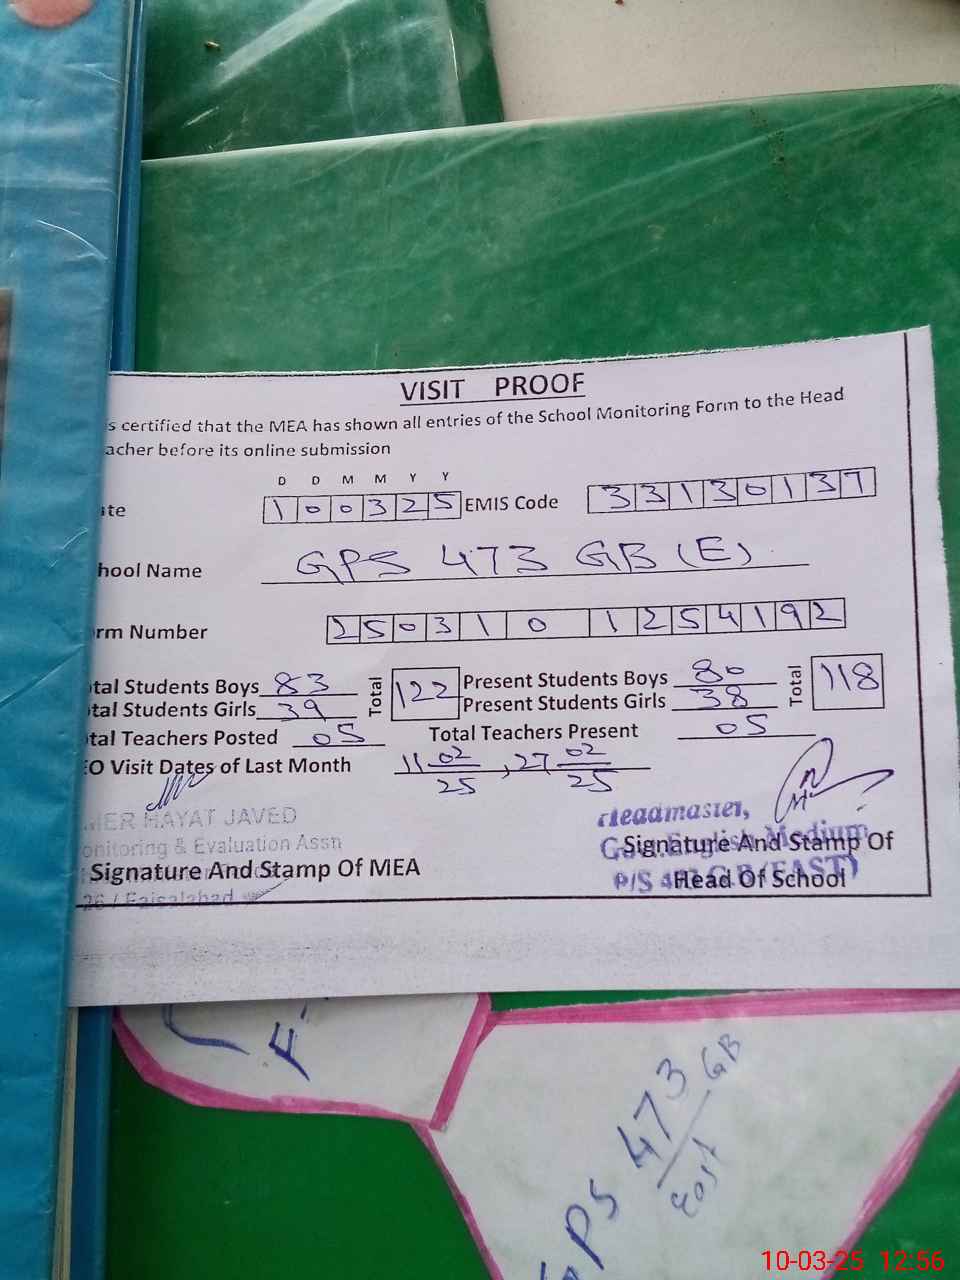 VISIT PROOF
s certified that the MEA has shown all entries of the School Monitoring Form to the Head
acher before its online submission
D D M M Y Y
te 1 0 0 3 2 5 EMIS Code 3 3 1 3 0 1 3 7
hool Name GPS 473 GB (E)
rm Number 2 5 0 3 1 0 1 2 5 4 1 9 2
tal Students Boys 83 Total 122 Present Students Boys 80 Total 118
tal Students Girls 39 Present Students Girls 38
tal Teachers Posted 05 Total Teachers Present 05
EO Visit Dates of Last Month 11 02/25, 27 02/25
HAYAT JAVED
onitoring & Evaluation Assn
Signature And Stamp Of MEA
26 / Faisalabad
Headmaster,
Govt. English Medium
Signature And Stamp Of
P/S 473 G.B (EAST)
Head Of School
F-
GPS 473 GB
East
10-03-25 12:56